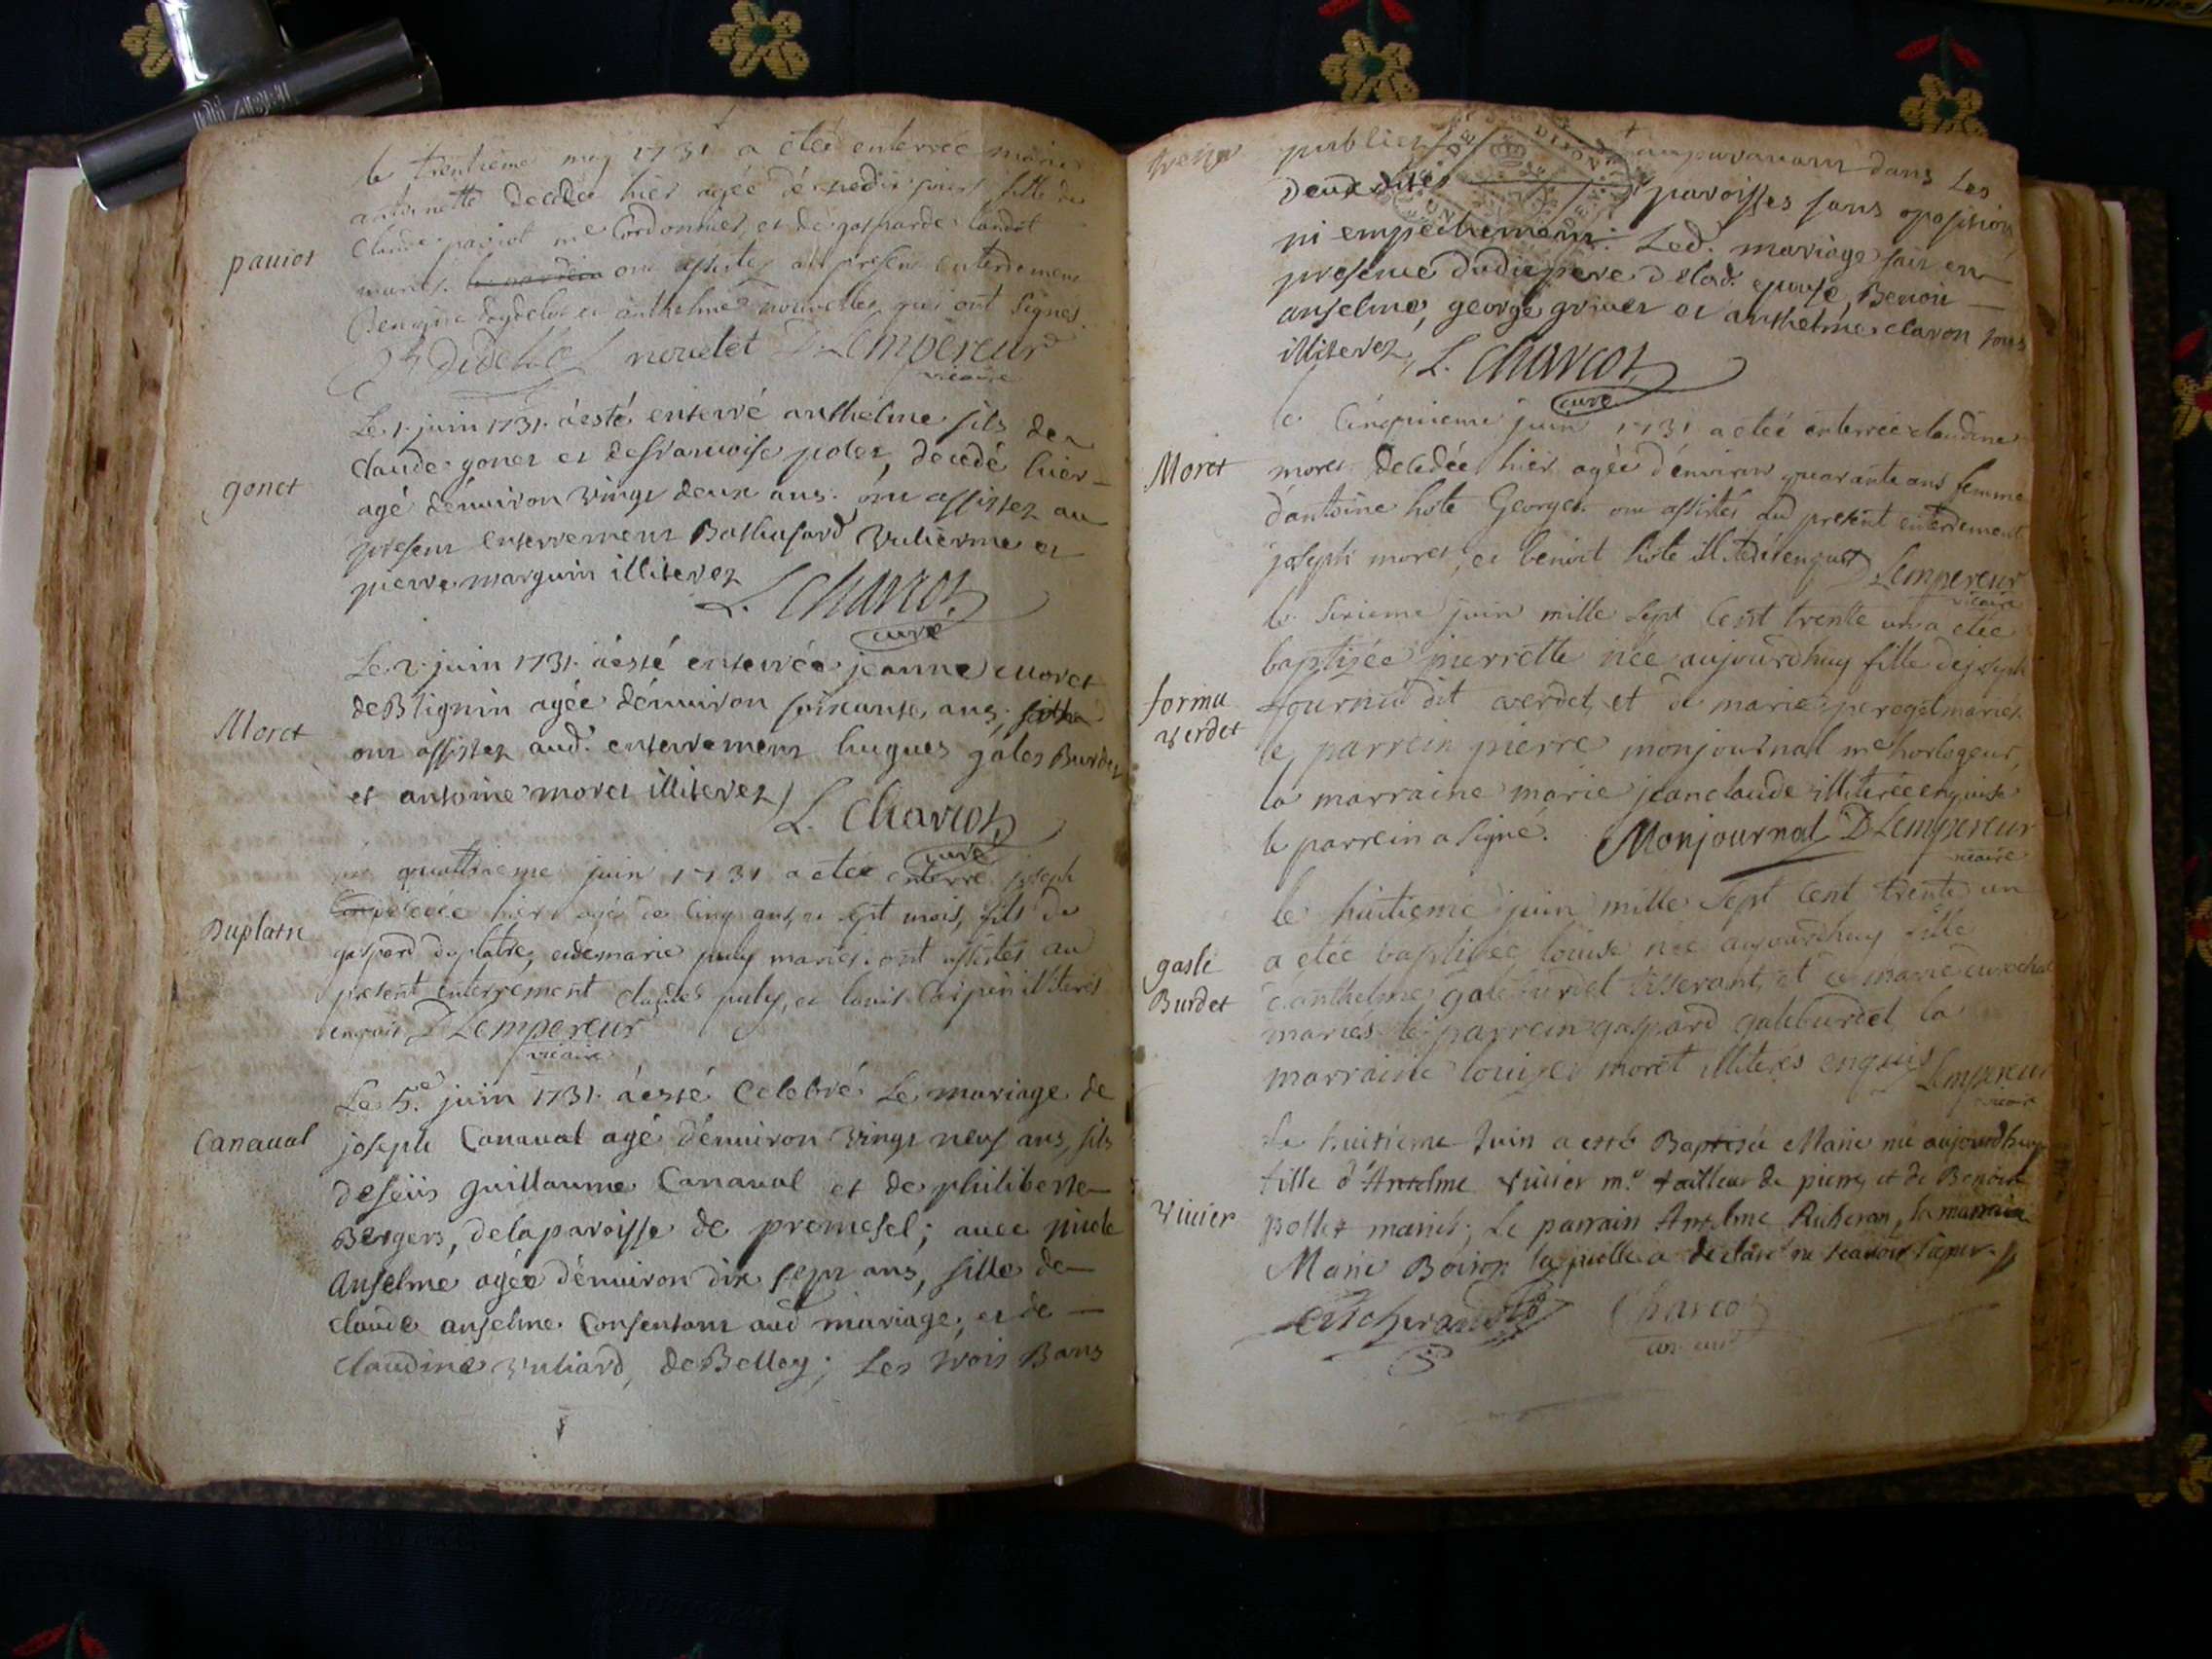 le trentieme may 1731 a eteé enterrée marie
antoinette decedeé hier ageé de jours fille de
Claude paviot me Cordonnier, et de gasparde landot
pauiot
mariés. ont assistez au present enterrement
et anthelme nouvellet qui ont signes.
noulet D. Lempereur
vicaire
Le 1. juin 1731. a esté enterré anthelme fils de
claude gonet et de francoise polet, decedé hier
gonet
agé d'enuiron vingt deux ans. ont assistez au
present enterrement Balthasard vulierme et
pierre marguin illiterez
L. Charcot
curé
Le 2. juin 1731. a esté enterrée jeanne Moret
de Blignin agée d'enuiron soixante ans,
Moret
ont assistez aud. enterrement hugues gales Burdet
et antoine moret illiterez
L. Charcot
curé
quattrieme juin 1731 a eteé enterré joseph
hier agé de Cinq ans et sept mois, fils de
Duplatre
gaspard duplatre, et de marie puly mariés. ont assistés au
present enterrement Claude puly, et louis Carpin illiterés
enquis D Lempereur
vicaire
Le 5.e juin 1731. a esté Celebré Le mariage de
Canaual
joseph Canaual agé d'enuiron vingt neuf ans, fils
de feüs guillaume Canaual et de philiberte
Bergers, de la paroisse de premesel; auec
Anselme agée d'enuiron dix sept ans, fille de
claude anselme Consentant aud mariage, et de
claudine vuliard, de Belley; Les trois Bans
publiez auparauant dans Les
deux dites paroisses sans oposition
ni empechement. Led. mariage fait en
presence dudit pere de lad. epouse, Benoit
anselme, george et anthelme claron tous
illiterez, L. Charcot
curé
le Cinquieme juin 1731 a eteé enterreé claudine
Moret
moret decedée hier ageé d'environ quarante ans femme
d'antoine hote Georget. ont assistés au present enterrement
joseph moret, et benoit hote illiterés enquis D Lempereur
vicaire
le sixieme juin mille sept Cent trente un a eteé
baptizeé pierrette neé aujourdhuy fille de joseph
fornu
verdet
fournu dit verdet, et de marie mariés
le parrein pierre monjournal me horlogeur,
la marraine marie jeanclaude illitereé enquise
le parrein a signé. Monjournal D Lempereur
vicaire
le huitieme juin mille sept Cent trente un
a eteé baptizeé louise neé aujourdhuy fille
gasle
Burdet
d'anthelme galeburdet tisserant, et de marie
mariés le parrein gaspard galeburdet la
marraine louise moret illiterés enquis Lempereur
vicaire
Le huitieme Juin a esté Baptisée Marie née aujourdhuy
fille d'Antelme vuiier m.e tailleur de pierre, et de Benoite
vuiier
pollet mariés; Le parrain Antelme Richeran, la marraine
Marie Boiron laquelle a declaré ne scavoir signer.
Richerand Charcot